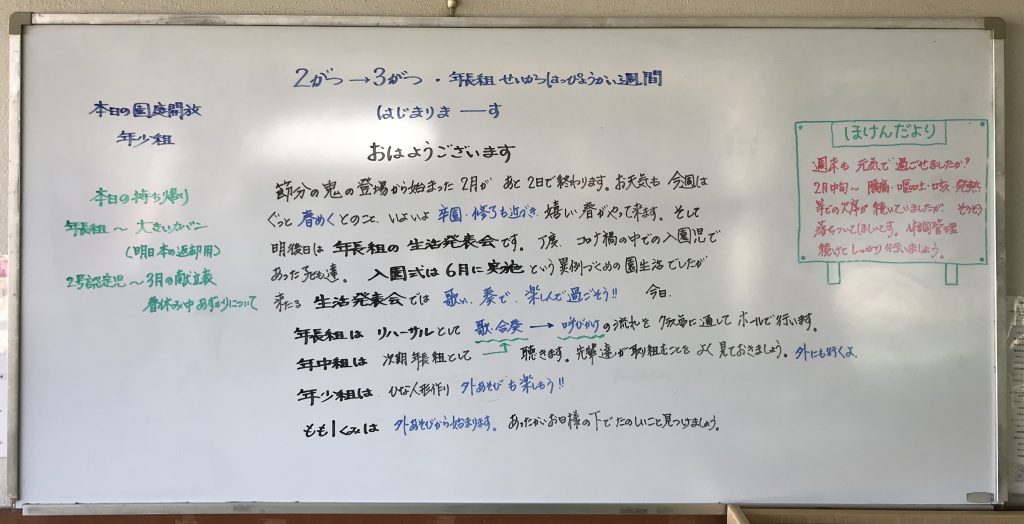 2がつ→3がつ・年長組 せいかつはっぴょうかい週間
はじまりま――す
本日の園庭開放
年少組
おはようございます
本日の持ち帰り
年長組～大きいカバン
(明日本の返却用)
2号認定児～3月の献立表
春休み中あずかりについて
節分の鬼の登場から始まった2月が あと2日で終わります。お天気も 今週は
ぐっと 春めくとのこと、いよいよ 卒園・修了も近づき 嬉しい春がやって来ます。そして
明後日は 年長組の生活発表会です。丁度、コロナ禍の中での入園児で
あった子ども達。 入園式は6月に実施という異例づくめの園生活でしたが
来たる 生活発表会では 歌い、奏で、楽しんで過ごそう!! 今日、
年長組は リハーサルとして 歌・合奏→呼びかけの流れを クラス毎に通して ホールで行います。
年中組は 次期年長組として → 聴きます。先輩達が取り組むことを よく見ておきましょう。外にも行くよ
年少組は ひな人形作り 外あそびも楽しもう!!
もも1くみは 外あそびから始まります。あったかいお日様の下でたのしいこと見つけましょう。
ほけんだより
週末も 元気で過ごせましたか?
2月中旬～ 腹痛・嘔吐・咳・発熱
等での欠席が続いていましたが そろそろ
落ちついてほしいです。体調管理
続けて しっかり行いましょう。